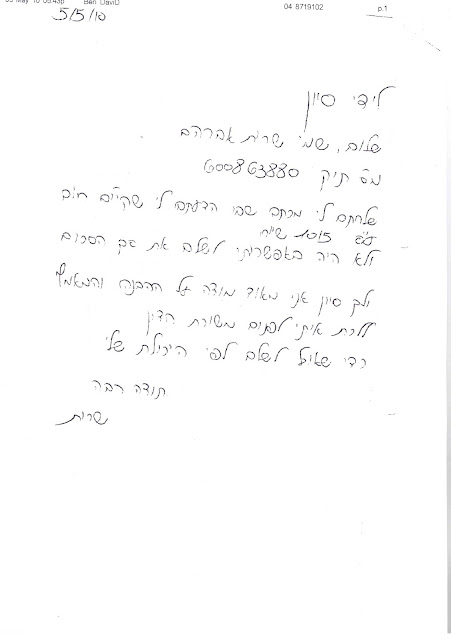 Ben DaviD
04 8719102
p.1
5/5/10
לידי סיון
שלום, שמי שרית אברהם
מס תיק 600863880
שלחתם לי מכתב שבו הודעתם לי שקיים חוב
ע"ס 1015 ש"ח
ולא היה באפשרותי לשלם את סך הסכום
ולך סיון אני מאוד מודה על ההבנה והמאמץ
ללכת איתי לפנים משורת הדין
כדי שאוכל לשלם לפי היכולת שלי
תודה רבה
שרית